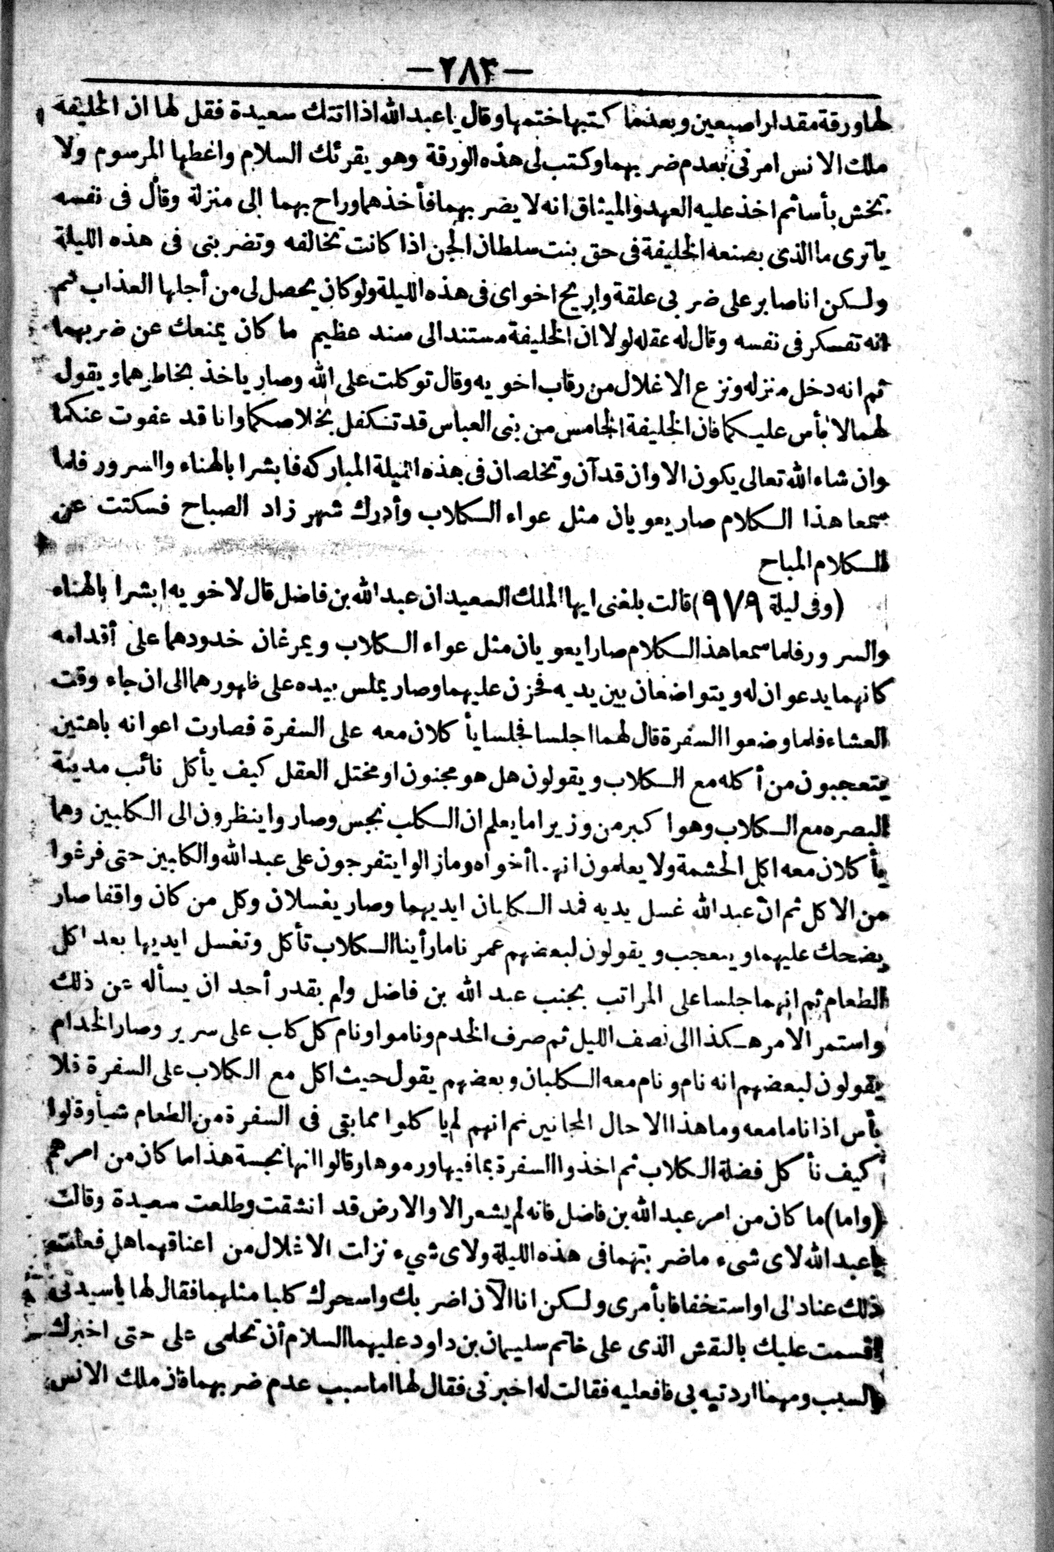 —٢٨٣—
لها ورقة مقدار اصبعين وبعدما كتبها ختمها وقال يا عبد الله اذا اتتك سعيدة فقل لها ان الخليفة
ملك الانس امرنى بعدم ضربهما وكتب لى هذه الورقة وهو يقرئك السلام واعطها المرسوم ولا
تخش بأسا ثم اخذ عليه العهد والميثاق انه لا يضربهما فأخذهما وراح بهما إلى منزلة وقال فى نفسه
ياترى ما الذى يصنعه الخليفة فى حق بنت سلطان الجن اذا كانت تخالفه وتضربنى فى هذه الليلة
ولكن انا صابر على ضربى علقة واريح اخواى فى هذه الليلة ولو كان يحصل لى من أجلها العذاب ثم
انه تفسكر فى نفسه وقال له عقله لولا ان الخليفة مستند الى سند عظيم ما كان يمنعك عن ضربهما
ثم انه دخل منزله ونزع الاغلال من رقاب اخويه وقال توكلت على الله وصار ياخذ بخاطرهما ويقول
لهما لا بأس عليكما فان الخليفة الخامس من بنى العباس قد تكفل بخلاصكما وانا قد عفوت عنكما
وان شاء الله تعالى يكون الاوان قد آن وتخلصان فى هذه الليلة المباركه فابشرا بالهناء والسرور فلما
سمعا هذا الكلام صار يعويان مثل عواء الكلاب وأدرك شهر زاد الصباح فسكتت عن
الكلام المباح
(وفى ليلة ٩٧٩) قالت بلغنى ايها الملك السعيد ان عبد الله بن فاضل قال لاخويه ابشرا بالهناء
والسرور فلما سمعا هذا الكلام صارا يعويان مثل عواء الكلاب ويمرغان خدودهما على أقدامه
كانهما يدعوان له ويتواضعان بين يديه فحزن عليهما وصار يملس بيده على ظهورهما الى ان جاء وقت
العشاء فلما وضعوا السفرة قال لهما اجلسا فجلسا يأكلان معه على السفرة فصارت اعوانه باهتين
يتعجبون من أكله مع الكلاب ويقولون هل هو مجنون او مختل العقل كيف يأكل نائب مدينة
البصره مع الكلاب وهو اكبر من وزير اما يعلم ان الكلب نجس وصاروا ينظرون الى الكلبين وهما
يأكلان معه اكل الحشمة ولا يعلمون انهما أخواه ومازالوا يتفرجون على عبد الله والكلبين حتى فرغوا
من الاكل ثم ان عبد الله غسل يديه فمد الكلبان ايديهما وصار يغسلان وكل من كان واقفا صار
يضحك عليهما ويتعجب ويقولون لبعضهم عمرنا ما رأينا الكلاب تأكل وتغسل ايديها بعد اكل
الطعام ثم انهما جلسا على المراتب بجنب عبد الله بن فاضل ولم يقدر أحد ان يسأله عن ذلك
واستمر الأمر هكذا الى نصف الليل ثم صرف الخدم وناموا ونام كل كلب على سرير وصار الخدام
يقولون لبعضهم انه نام ونام معه الكلبان وبعضهم يقول حيث اكل مع الكلاب على السفرة فلا
بأس اذا ناما معه وما هذا الا حال المجانين ثم انهم لم ياكلوا مما بقى فى السفرة من الطعام شيأ وقالوا
كيف نأكل فضلة الكلاب ثم اخذوا السفرة بما فيها ورموها وقالوا انها نجسة هذا ما كان من امرهم
(واما) ما كان من امر عبد الله بن فاضل فانه لم يشعر الا والارض قد انشقت وطلعت سعيدة وقالت
يا عبد الله لاى شىء ما ضربتهما فى هذه الليلة ولاى شىء نزلت الاغلال من اعناقهما هل فعلت
ذلك عنادا لى او استخفافا بأمرى ولكن انا الآن اضربك واسحرك كلبا مثلهما فقال لها ياسيدتى
اقسمت عليك بالنقش الذى على خاتم سليمان بن داود عليهما السلام أن تحلمى على حتى اخبرك
بالسبب ومهما اردتيه بى فافعليه فقالت له اخبرنى فقال لها اما سبب عدم ضربهما فان ملك الانس